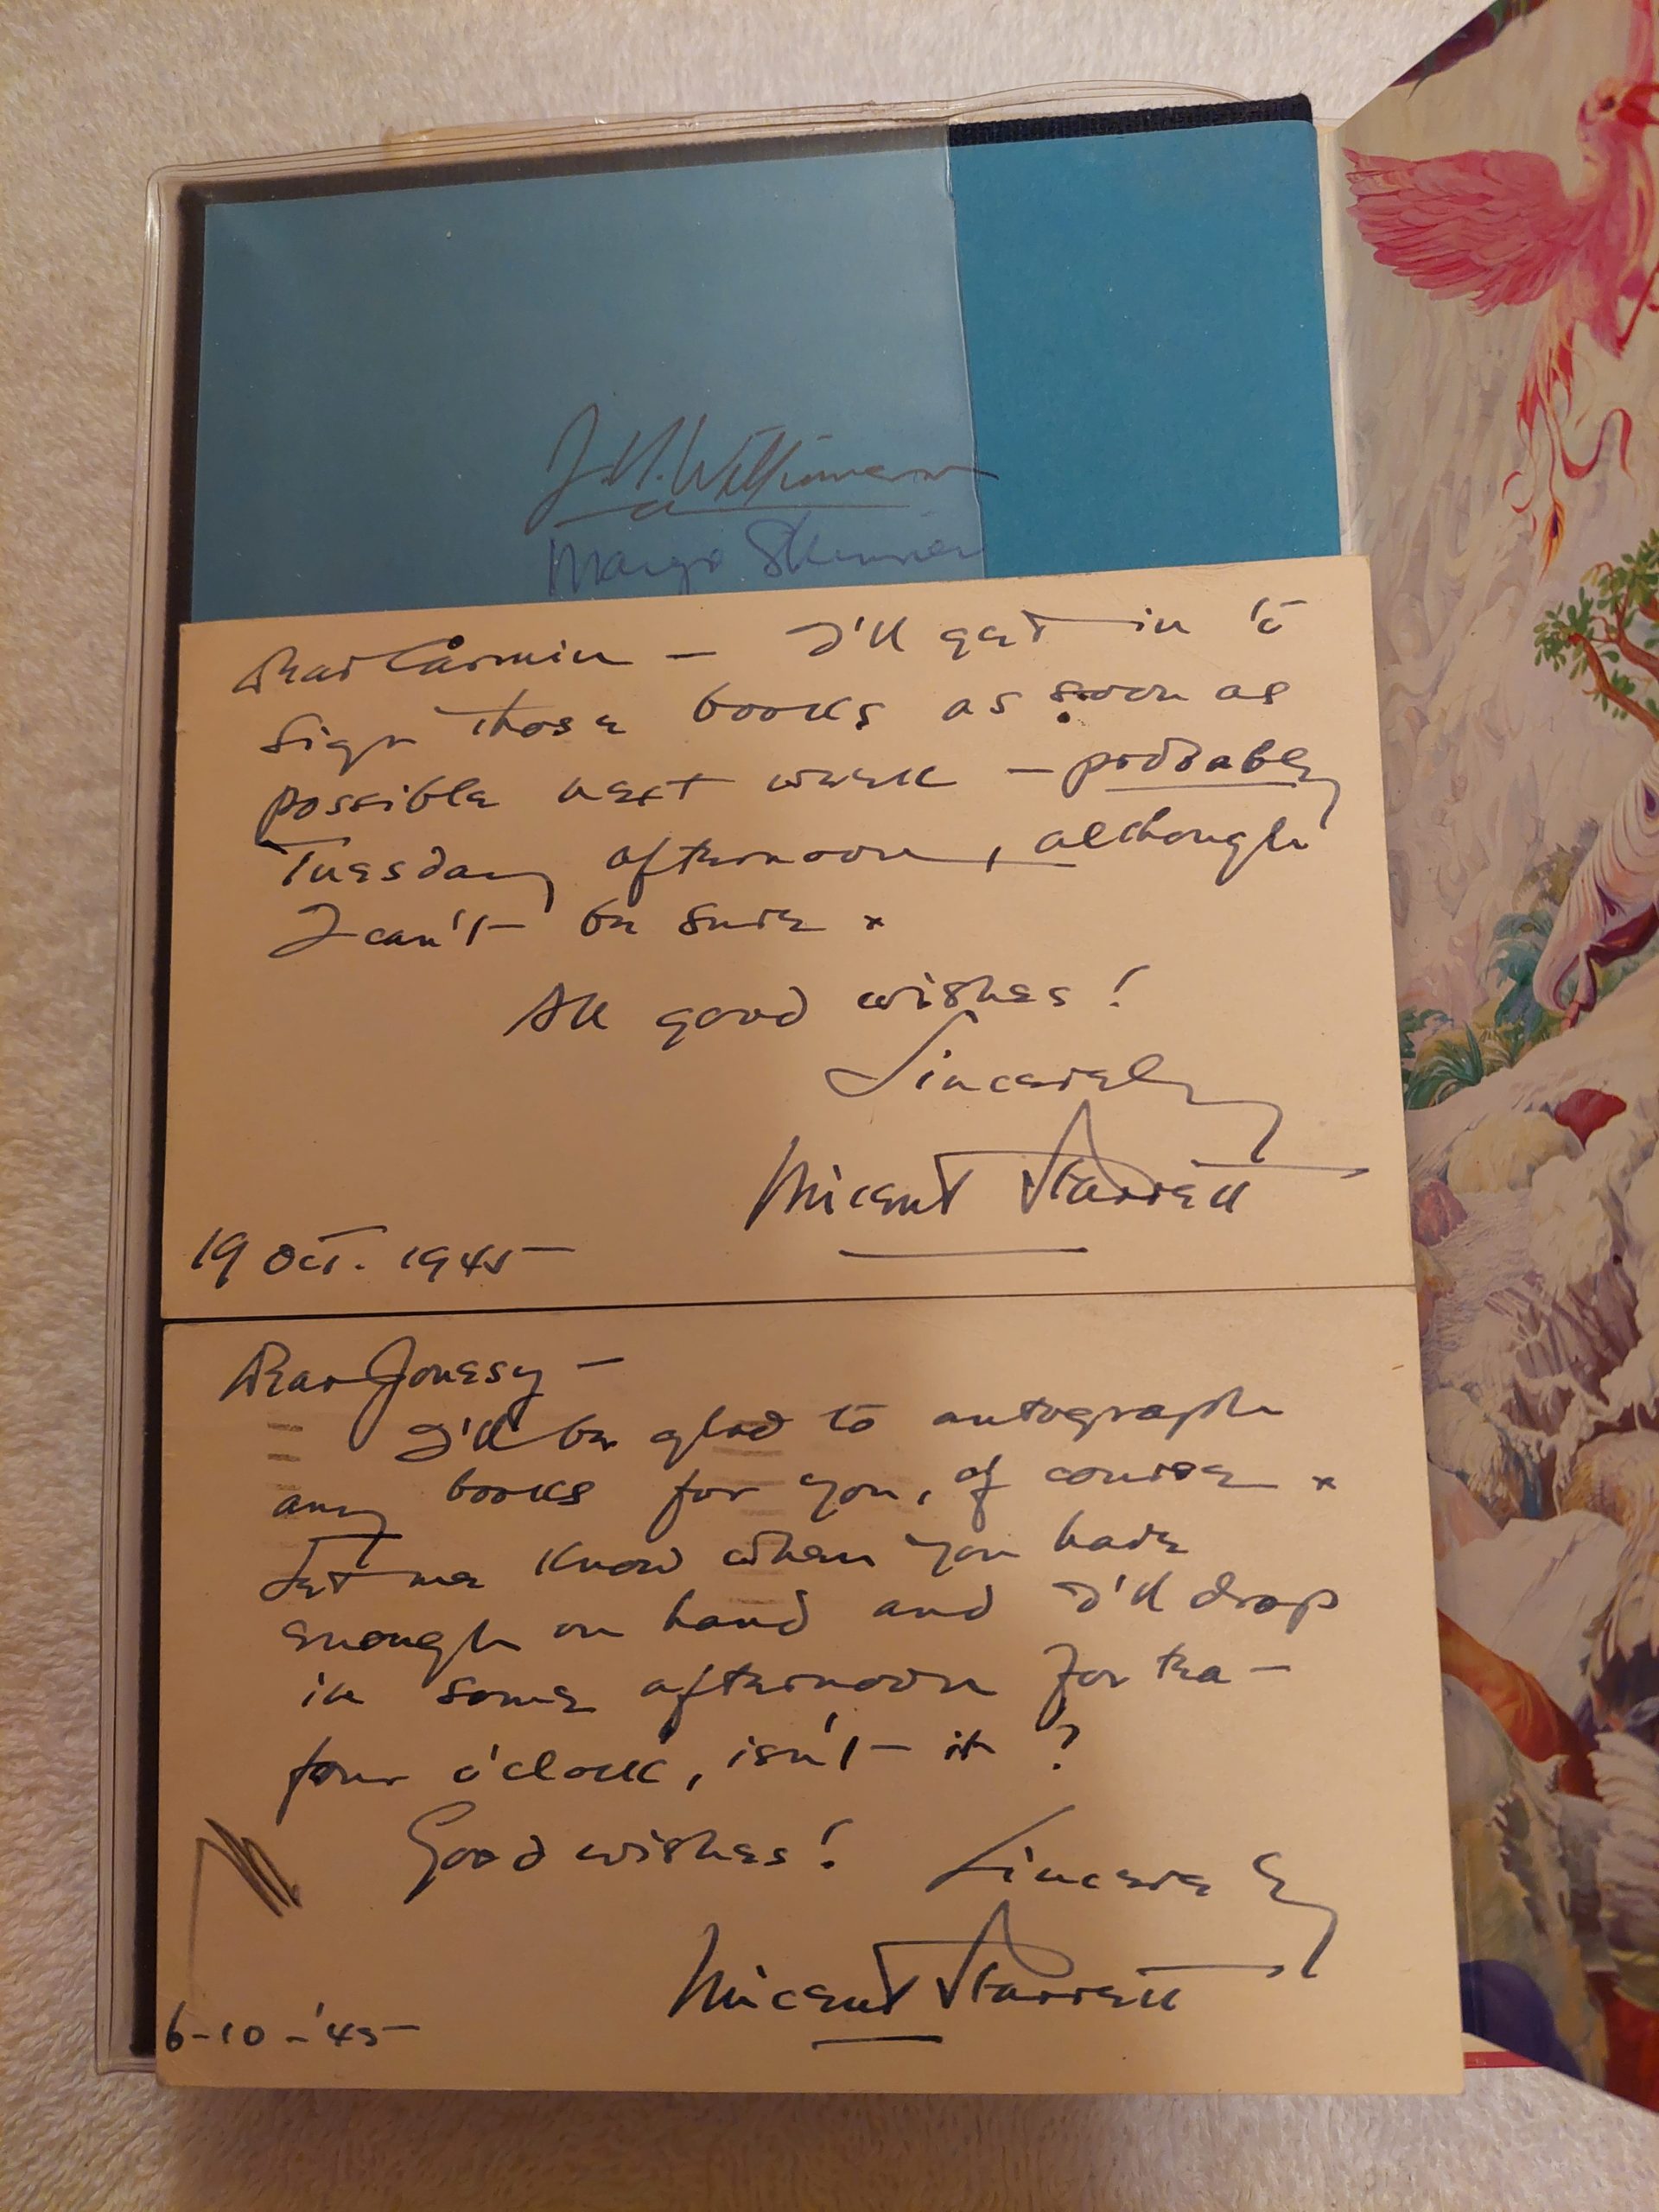 J.N. Williamson
Margo Skinner
Dear Carmin — I'll get in to
sign those books as soon as
possible next week — probably
Tuesday afternoon, although
I can't be sure x
All good wishes!
Sincerely
Vincent Starrett
19 Oct. 1945
Dear Jonesy —
I'll be glad to autograph
any books for you, of course x
Let me know when you have
enough on hand and I'll drop
in some afternoon for tea —
four o'clock, isn't it?
Good wishes! Sincerely
Vincent Starrett
6-10-'45